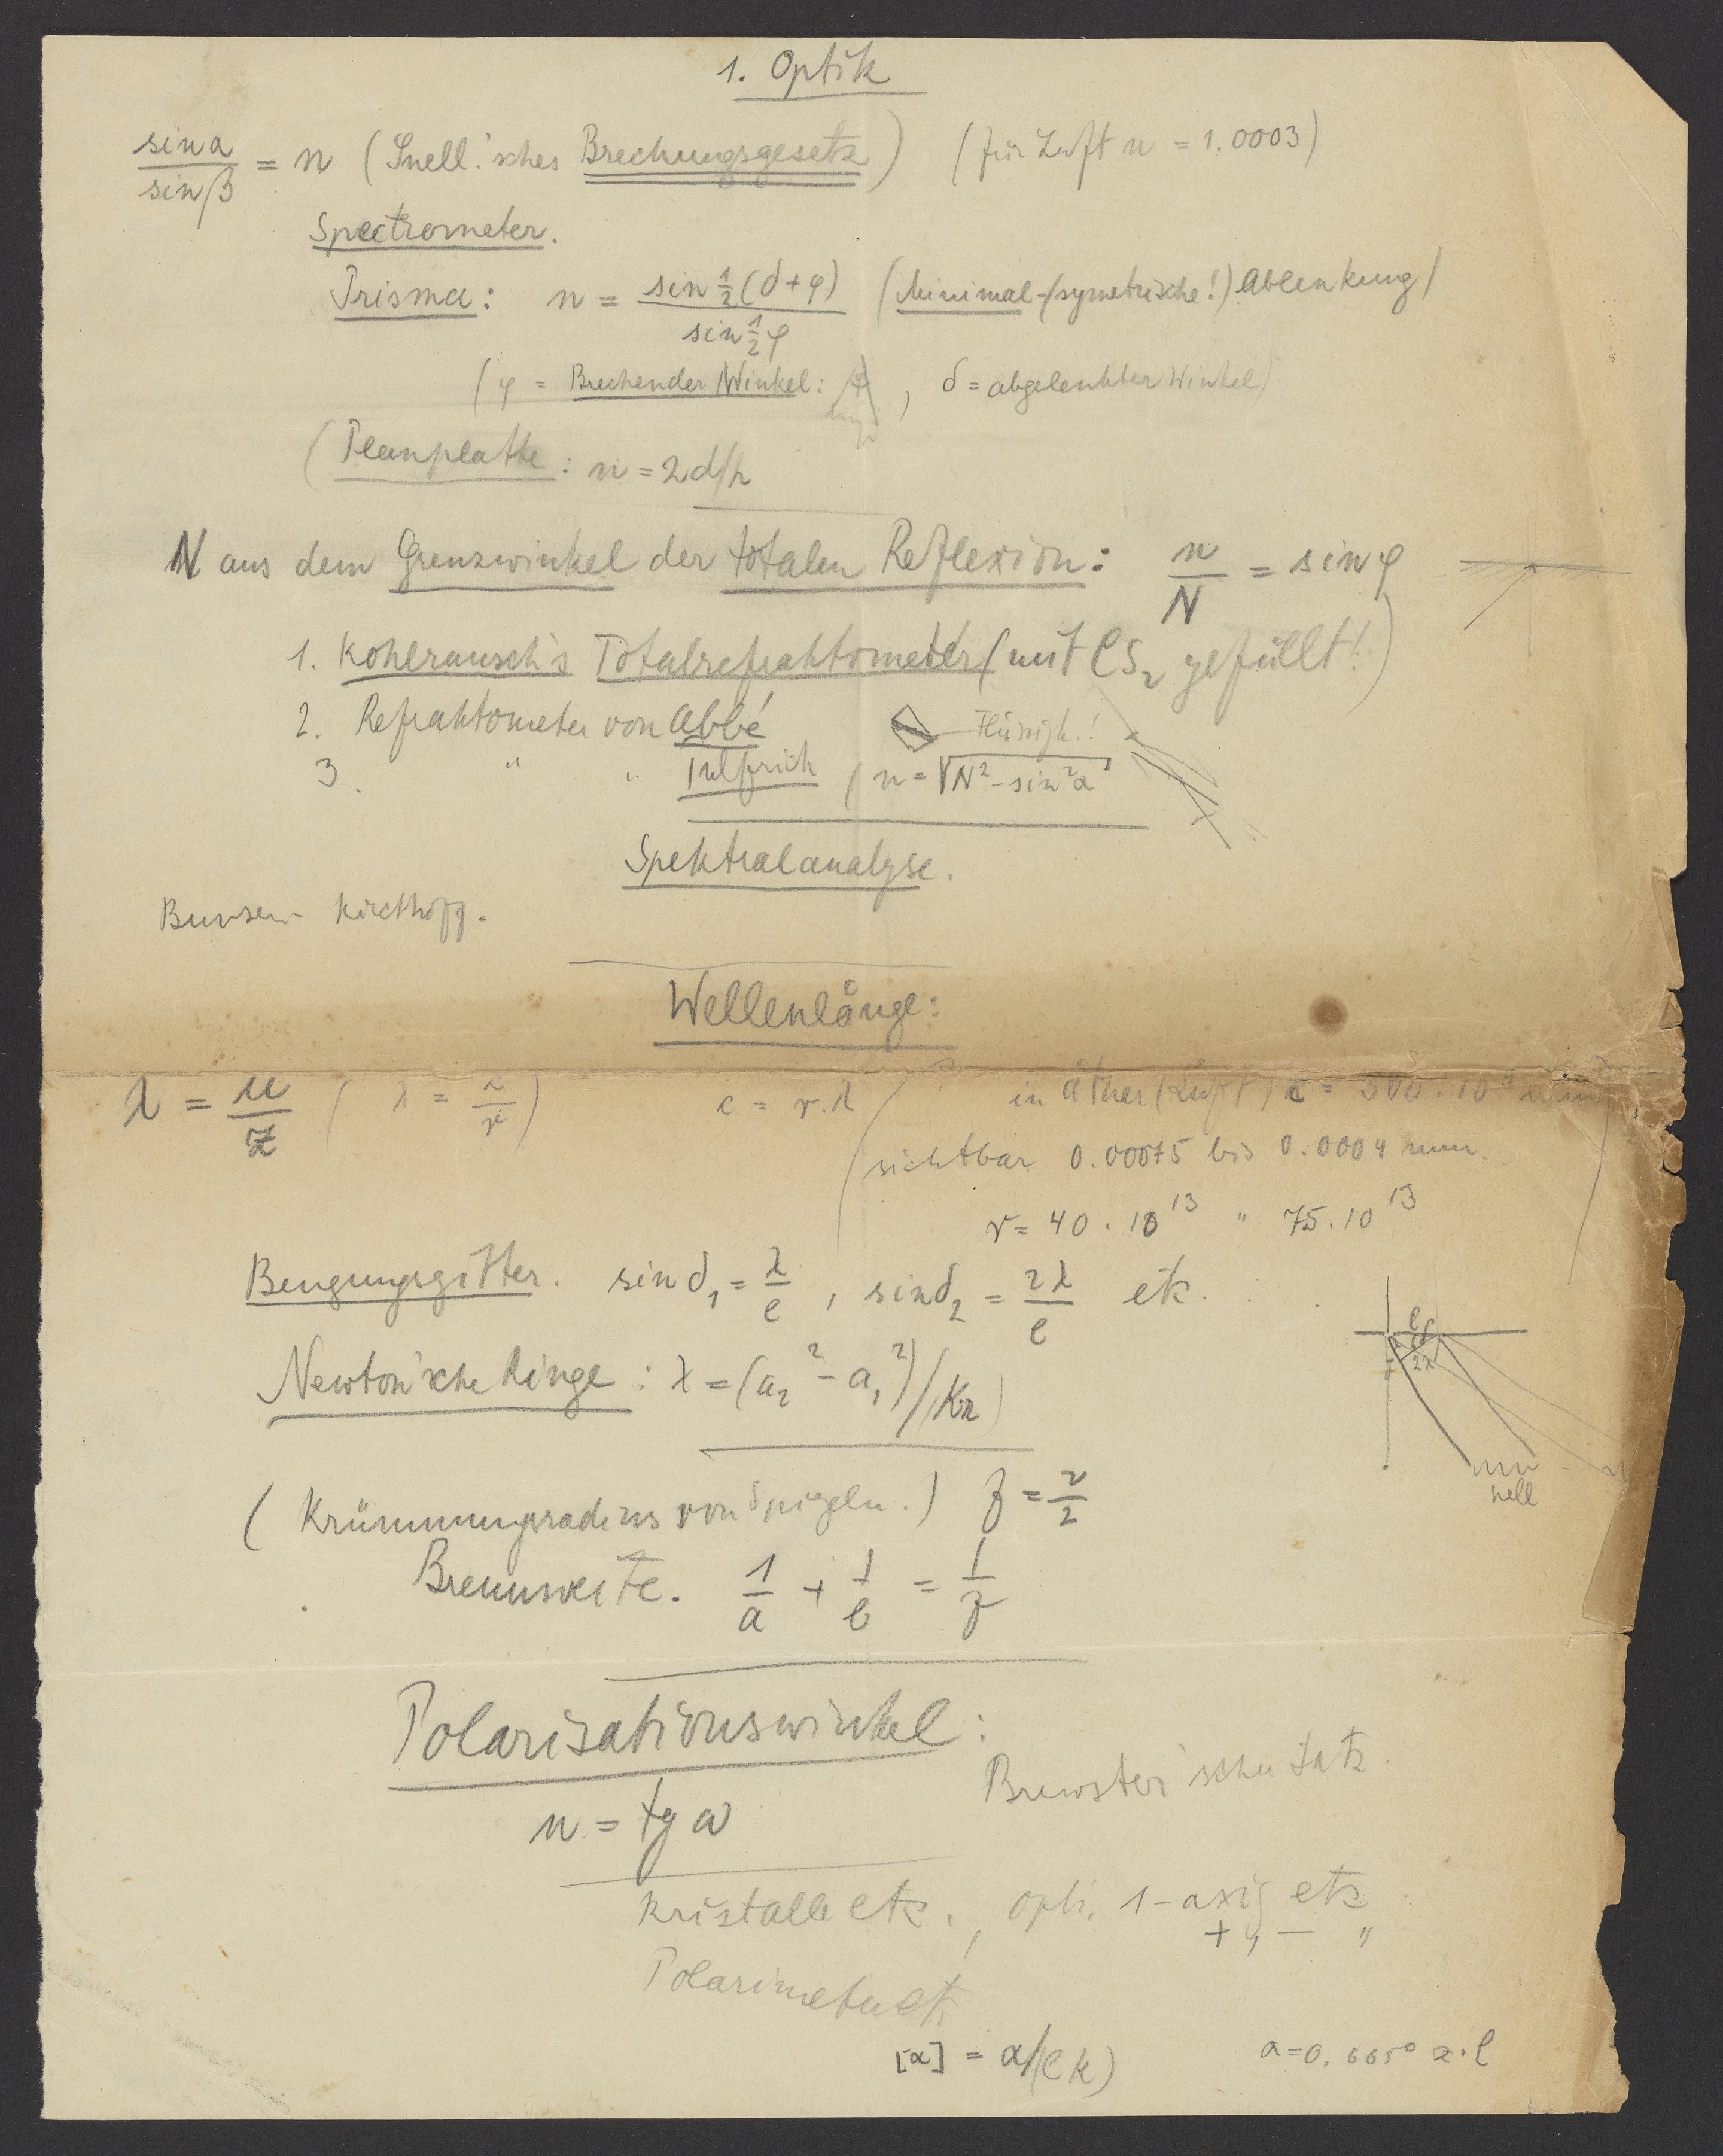 1. Optik
sin α / sin β = n (Snell'sches Brechungsgesetz) (für Luft n = 1.0003)
Spectrometer.
Prisma: n = sin ½(δ+φ) / sin ½φ (Minimal-(symetrische!) Ablenkung)
(φ = Brechender Winkel: φ , δ = abgelenkter Winkel)
(Planplatte: n = 2d/h
N aus dem Grenzwinkel der totalen Reflexion: n/N = sin φ
1. Kohlrausch's Totalrefraktometer (mit CS₂ gefüllt!)
2. Refraktometer von Abbé Flüssigk.!
3. " " Pulfrich (n = √N² - sin²α
Spektralanalyse.
Bunsen Kirchhoff.
Wellenlänge:
λ = u/z ( λ = c/ν ) c = ν.λ in Äther (Luft) c = 300.10⁹ mm
(sichtbar 0.00075 bis 0.0004 mm.
ν = 40.10¹³ " 75.10¹³
Beugungsgitter. sin δ₁ = λ/e , sin δ₂ = 2λ/e etz.
e δ
2λ
Newton'sche Ringe: λ = (a₂² - a₁²)/(Kr)
hell
(Krümmungsradius von Spiegeln.) f = r/2
Brennweite. 1/a + 1/b = 1/f
Polarisationswinkel:
Brewster'scher Satz.
n = tg ω
Kristalle etz., opti. 1-axig etz
+, - "
Polarimeter et.
[α] = α/(l k) α = 0.665° z.l